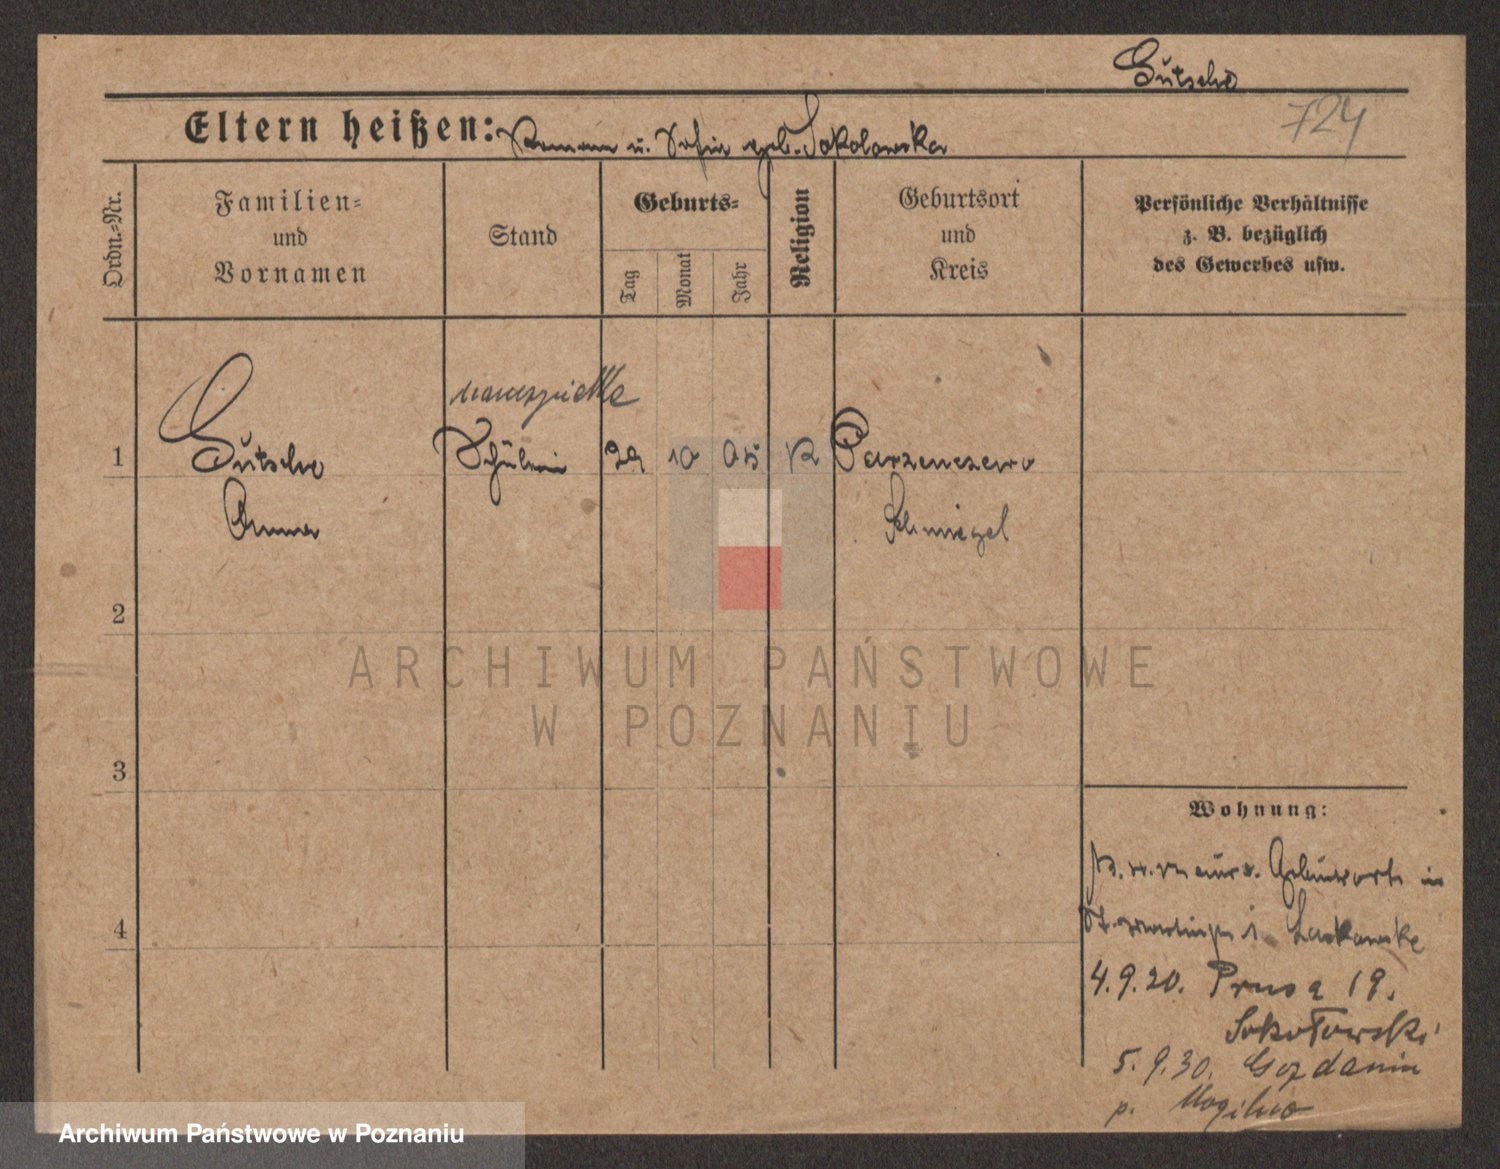 Gutsche
Eltern heißen: Roman u. Sofia geb. Sokolowska
724
Ordn.-Nr.
Familien-
und
Vornamen
Stand
Geburts-
Tag
Monat
Jahr
Religion
Geburtsort
und
Kreis
Persönliche Verhältnisse
z. B. bezüglich
des Gewerbes usw.
1
Gutsche
Anna
Schülerin
29
10
05
K
Parzenczewo
Schmiegel
2
3
4
Wohnung:
Geburtsort in
St. Martin
4.9.20. Prusa 19.
Sokołowski
5.9.30. Gozdanin
p. Mogilno
ARCHIWUM PAŃSTWOWE
W POZNANIU
Archiwum Państwowe w Poznaniu